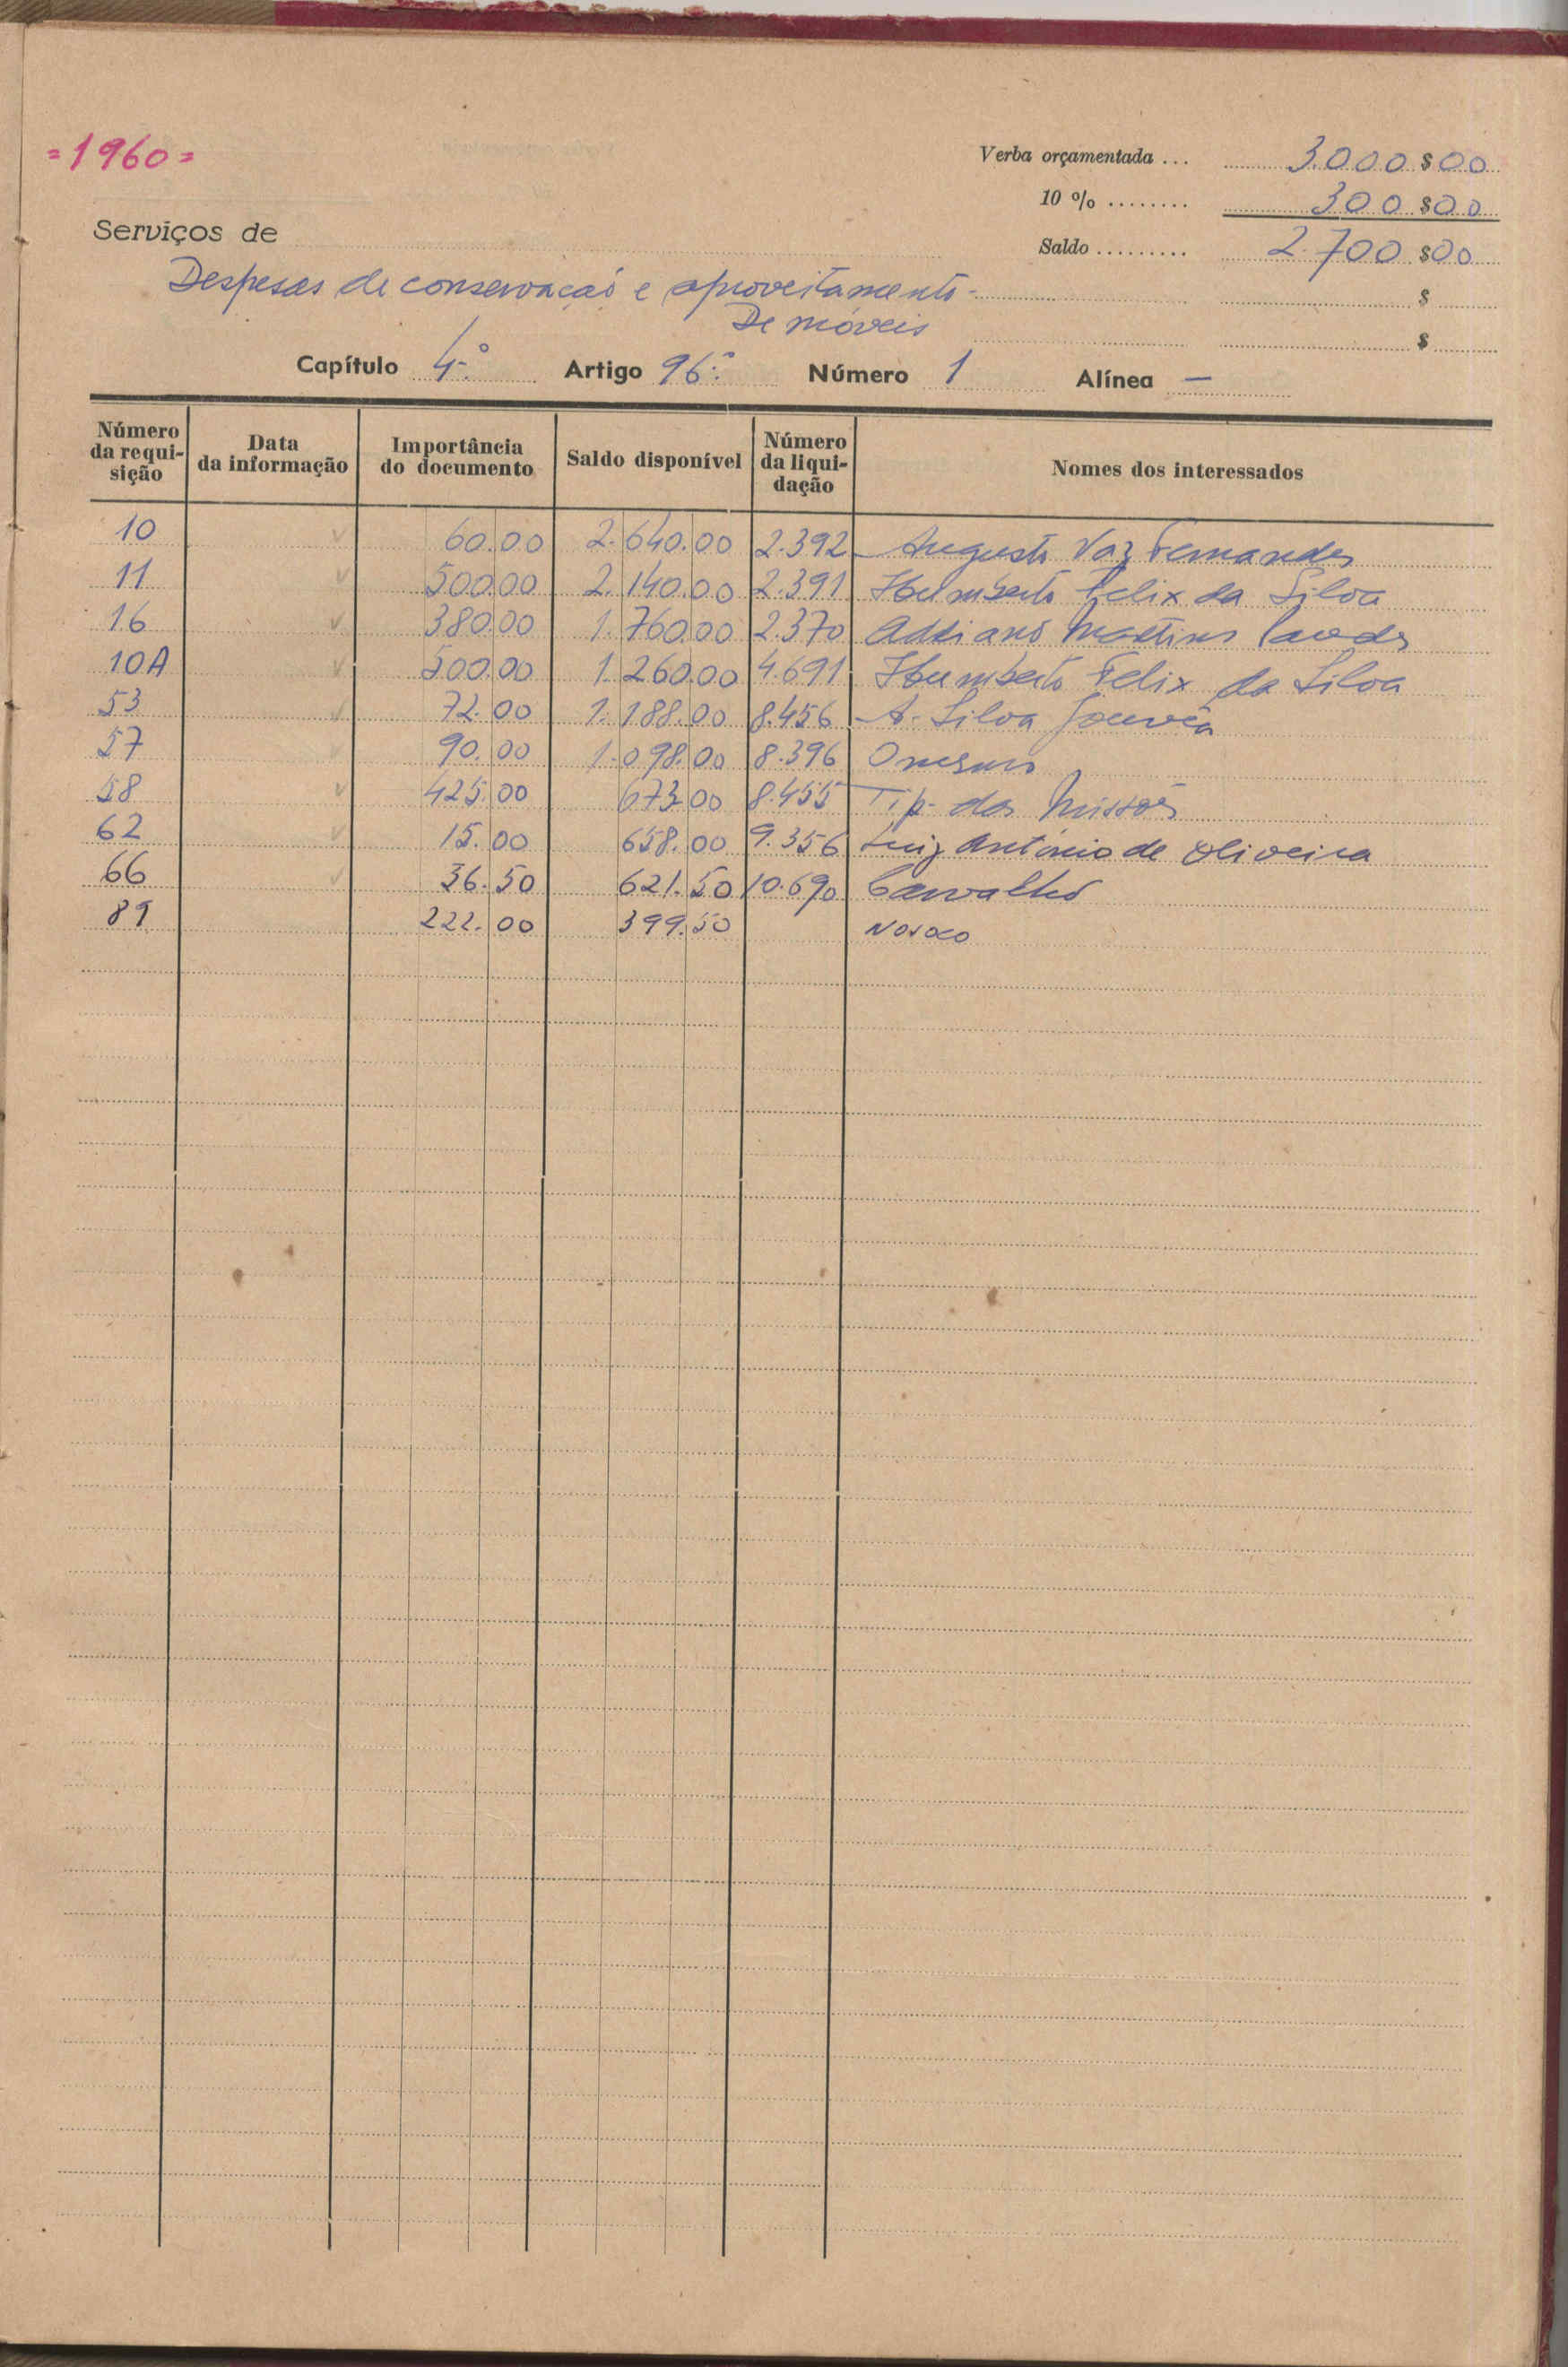 =1960=
Verba orçamentada ... 3.000$00
10 % ........ 300$00
Serviços de
Saldo ......... 2.700$00
Despesas de conservação e aproveitamento- $
De móveis $
Capítulo 4.º Artigo 96.º Número 1 Alínea —
Número da requi-sição Data da informação Importância do documento Saldo disponível Número da liqui-dação Nomes dos interessados
10 ✓ 60.00 2.640.00 2.392 Augusto Vaz Fernandes
11 ✓ 500.00 2.140.00 2.391 Humberto Felix da Silva
16 ✓ 380.00 1.760.00 2.370 Adriano Martins
10A ✓ 500.00 1.260.00 4.691 Humberto Felix da Silva
53 ✓ 72.00 1.188.00 8.456 A. Silva Gouvêa
57 ✓ 90.00 1.098.00 8.396
58 ✓ 425.00 673.00 8.455 Tip. das Missões
62 ✓ 15.00 658.00 9.356 Luiz António de Oliveira
66 ✓ 36.50 621.50 10.690 Carvalho
89 222.00 399.50 Nosoco